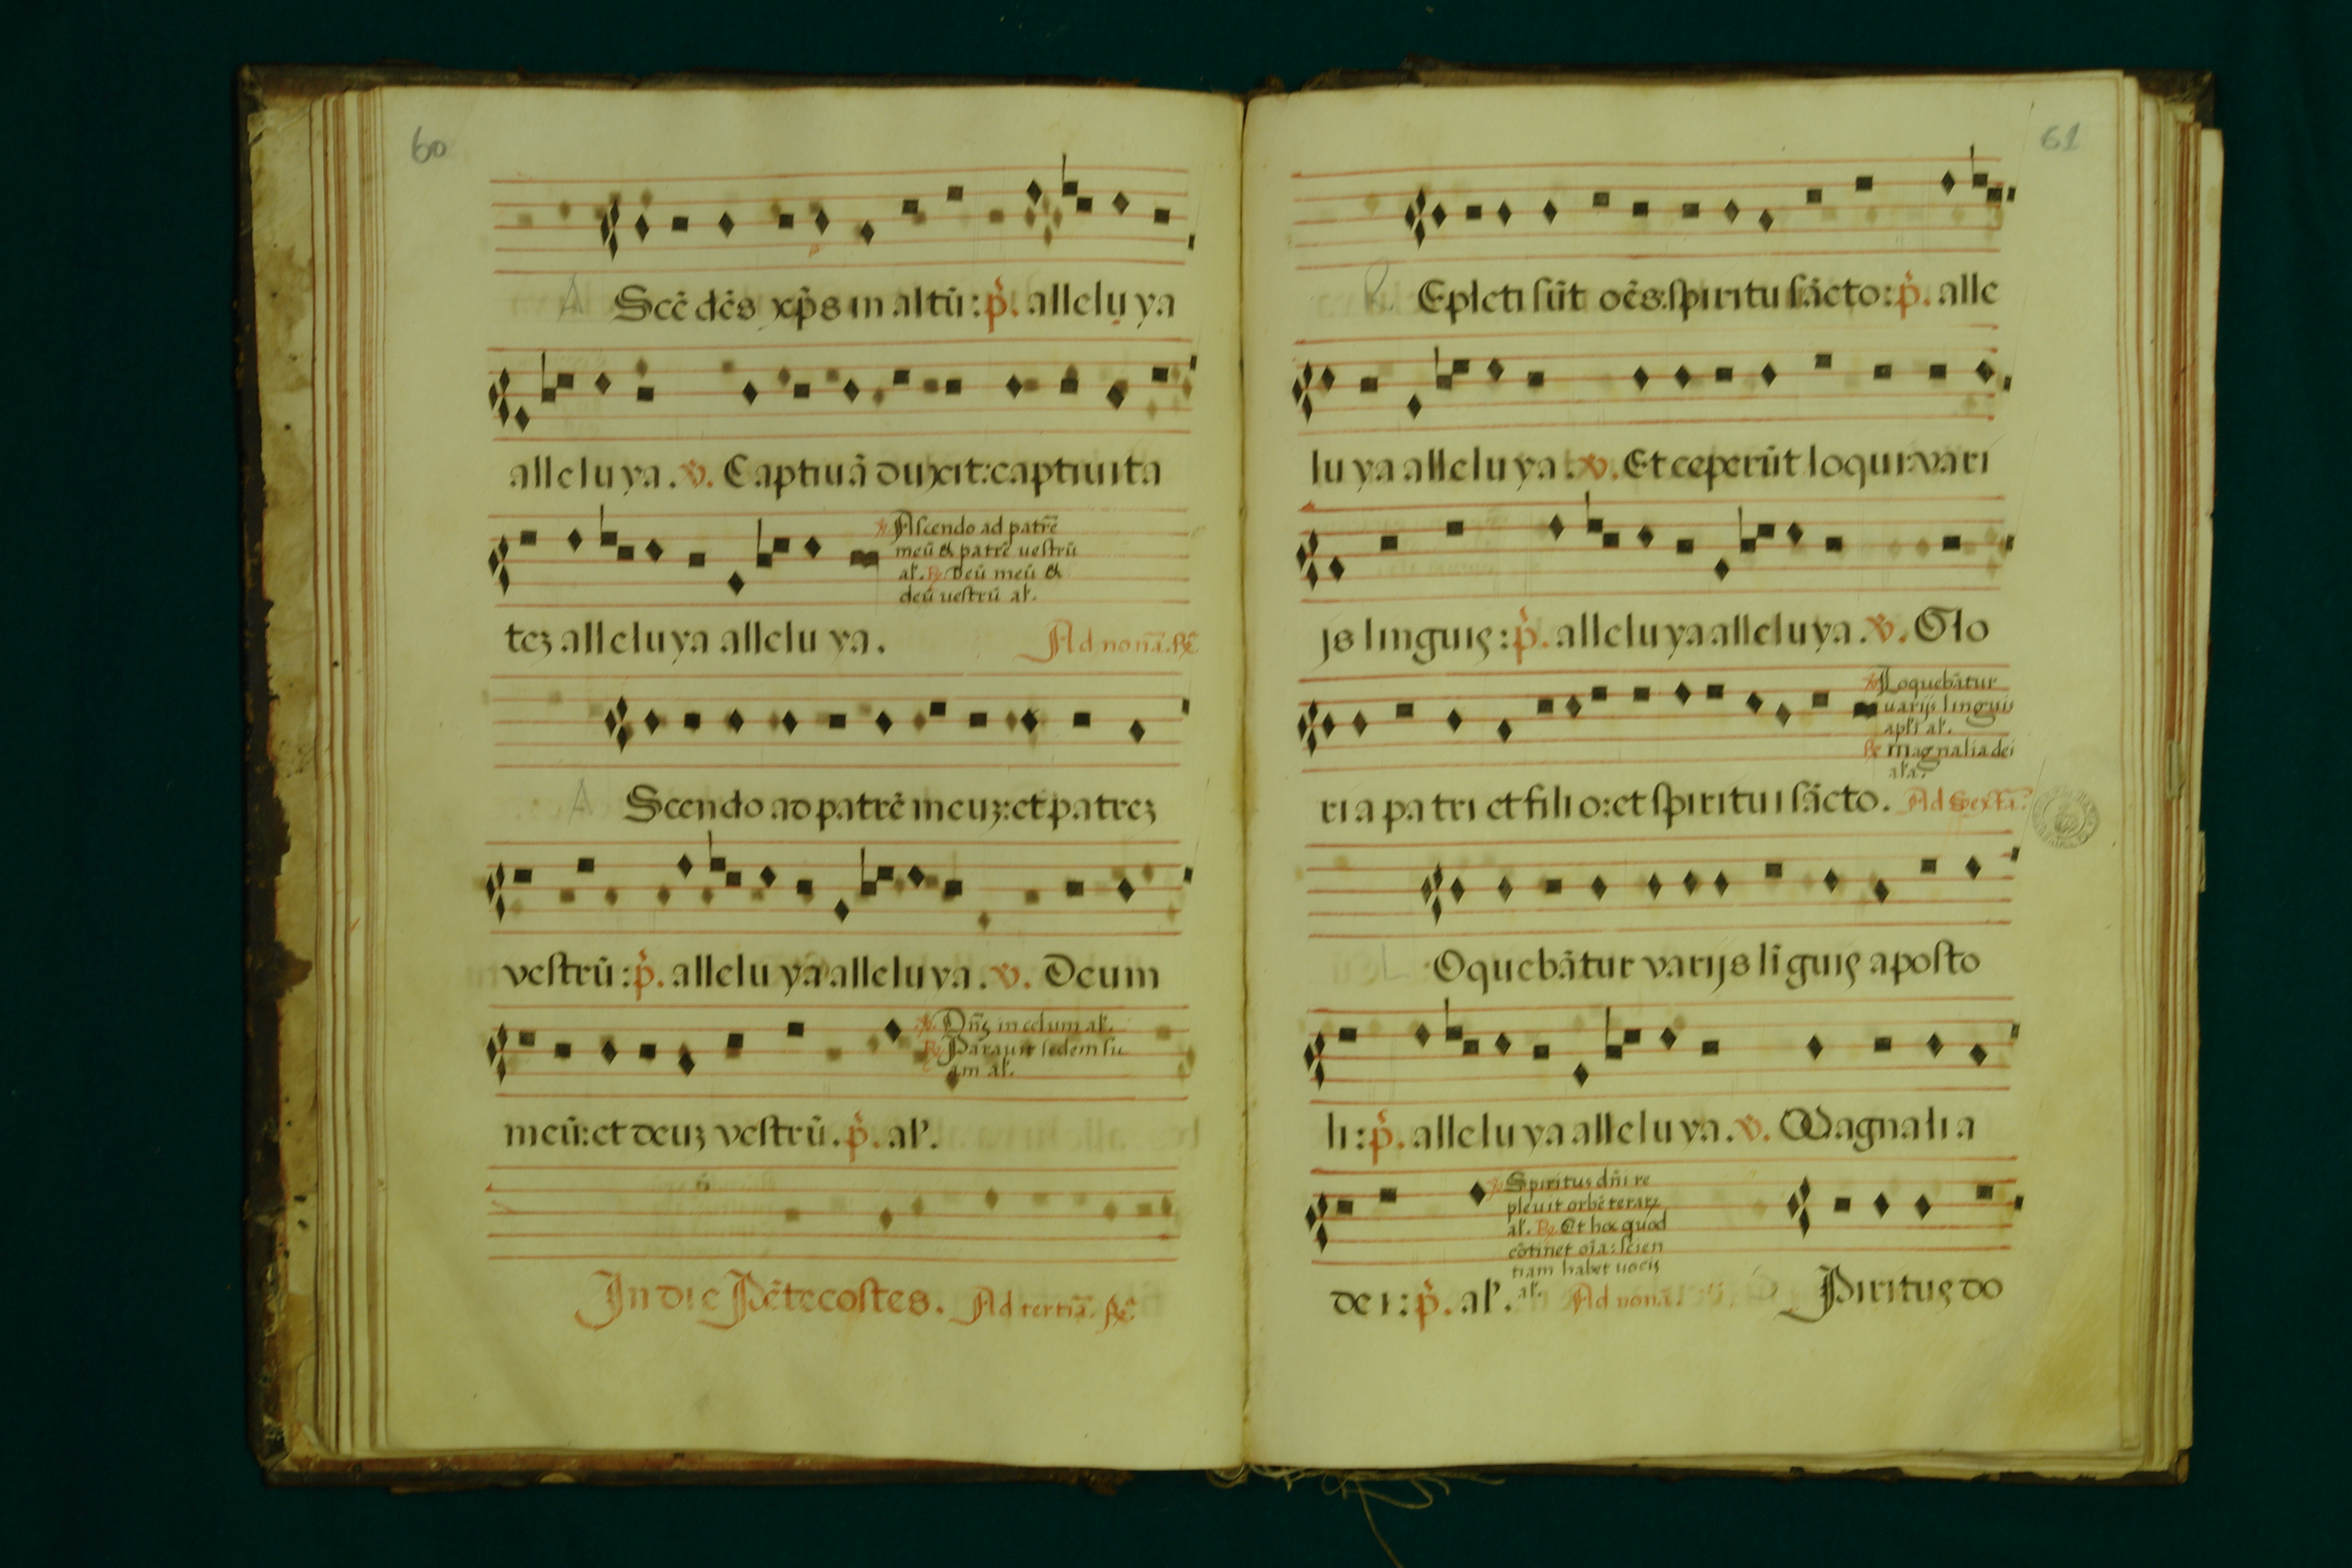 60
A Scēdēs xp̄s in altū: p̄. alleluya
alleluya. v. Captiuā duxit: captiuita
℣. Ascendo ad patrē
meū & patrē uestrū
al'. ℟. Deū meū &
deū uestrū al'.
tez alleluya alleluya. Ad nonā. ℟
A Scendo ad patrē meuz: et patrez
vestrū: p̄. alleluya alleluya. v. Deum
℣. Dn̄s in celum al'.
℟. Parauit sedem su
am al'.
meū: et deuz vestrū. p̄. al'.
In die Pētecostes. Ad tertiā. ℟
61
R. Epleti sūt oēs spiritu sācto: p̄. alle
luya alleluya. v. Et ceperūt loqui vari
js linguis: p̄. alleluya alleluya. v. Glo
℣. Loquebātur
uarijs linguis
apl'i al'.
℟. magnalia dei
al'a.
ria patri et filio: et spiritui sācto. Ad Sextā.
L Oquebātur varijs līguis aposto
li: p̄. alleluya alleluya. v. Magnalia
℣. Spiritus dn̄i re
pleuit orbē terarꝝ
al'. ℟. Et hoc quod
cōtinet oīa: scien
tiam habet uocis
al'.
dei: p̄. al'. Ad nonā. S Piritus do